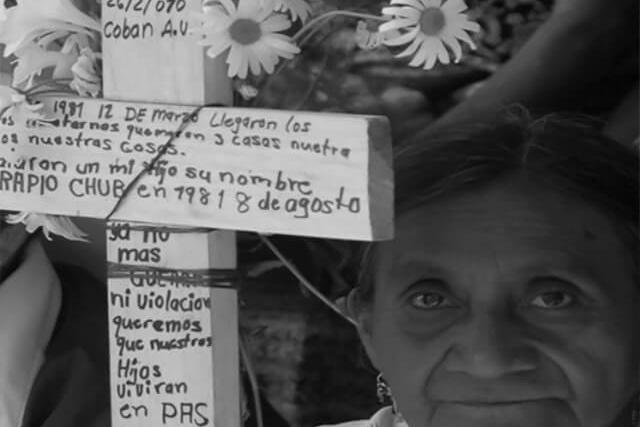 26/2/010
Coban A.V.
1981 12 DE Marzo Llegaron los
quemaron 3 casas nuetra
nuestras cosas.
un mi Hijo su nombre
RAPIO CHUB en 1981 8 de agosto
ya no
mas
GUERRA
ni violacion
queremos
que nuestros
Hijos
viviran
en PAS